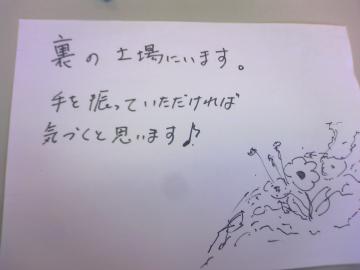 裏の土場にいます。
手を振っていただければ
気づくと思います♪